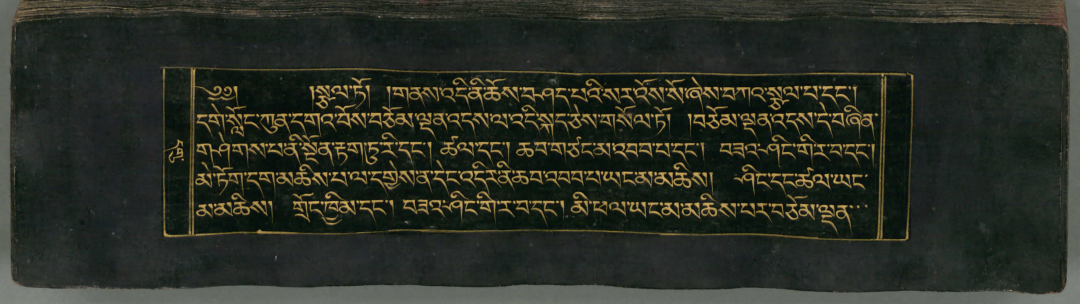 ༄༅། །སྩལ་ཏོ། །གནས་འདི་ནི་ཆོས་བཤད་པའི་སར་འོས་སོ་ཞེས་བཀའ་སྩལ་པ་དང་།
དགེ་སློང་ཀུན་དགའ་བོས་བཅོམ་ལྡན་འདས་ལ་འདི་སྐད་ཅེས་གསོལ་ཏོ། །བཅོམ་ལྡན་འདས་དེ་བཞིན་
གཤེགས་པ་ནི་སྔོན་རྟག་ཏུ་རི་དང་། ཚལ་དང་། ཆབ་གཙང་མ་འབབ་པ་དང་། བཟའ་ཤིང་གི་ར་བ་དང་།
མེ་ཏོག་དག་མཆིས་པ་ལ་དགྱེས་ན་དེང་འདིར་ནི་ཆབ་འབབ་པ་ཡང་མ་མཆིས། ཤིང་དང་ཚལ་ཡང་
མ་མཆིས། གྲོང་ཁྱིམ་དང་། བཟའ་ཤིང་གི་ར་བ་དང་། མི་ཕལ་ཡང་མ་མཆིས་པར་བཅོམ་ལྡན་